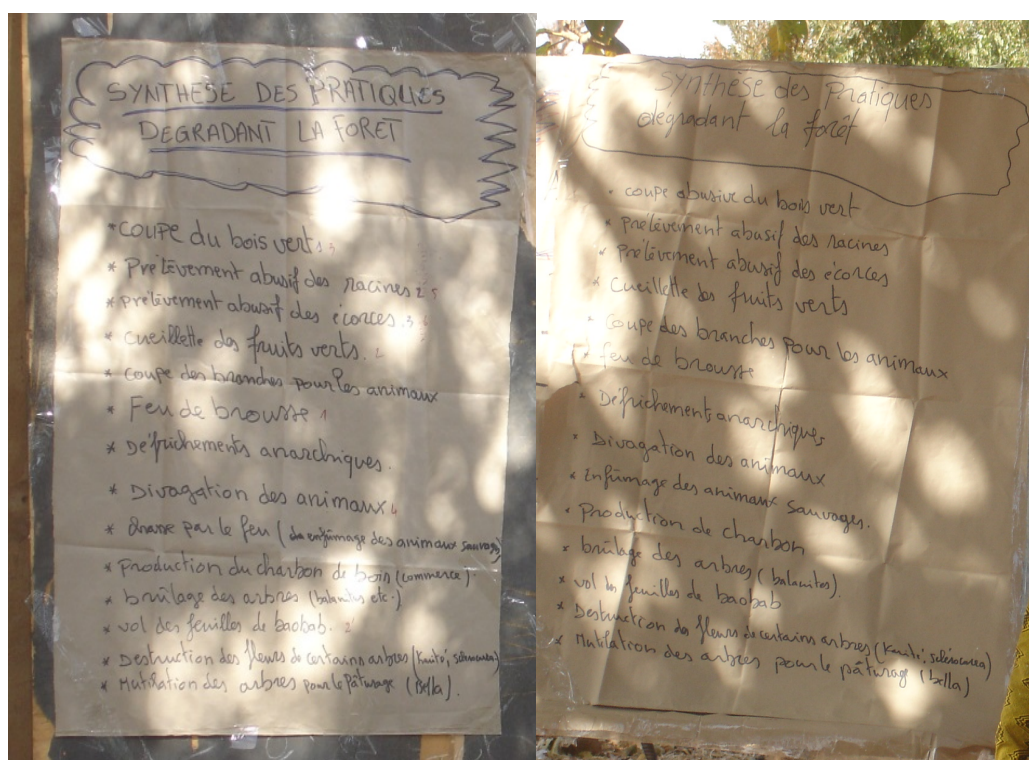 SYNTHESE DES PRATIQUES
DEGRADANT LA FORET
* COUPE du bois verts 5
* Prélèvement abusif des racines 2 5
* prélèvement abusif des écorces. 3
* cueillette des fruits verts. 2
* coupe des branches pour les animaux
* Feu de brousse 1
* Défrichements anarchiques.
* Divagation des animaux 4
* chasse par le feu ( enfûmage des animaux sauvages)
* Production du charbon de bois (commerce)
* brûlage des arbres (balanites etc.)
* vol des feuilles de baobab. 2
* Destruction des fleurs de certains arbres (Karité, sclerocarea)
* Mutilation des arbres pour le pâturage (Bella).
Synthèse des Pratiques
dégradant la forêt
* coupe abusive du bois vert
* Prélèvement abusif des racines
* Prélèvement abusif des écorces
* Cueillette des fruits verts
* Coupe des branches pour les animaux
* feu de brousse
* Défrichements anarchiques
* Divagation des animaux
* Enfûmage des animaux sauvages.
* Production de charbon
* brûlage des arbres ( balanites).
* vol des feuilles de baobab
* Destruction des fleurs de certains arbres (Karité, sclérocarea)
* Mutilation des arbres pour le pâturage (bella)